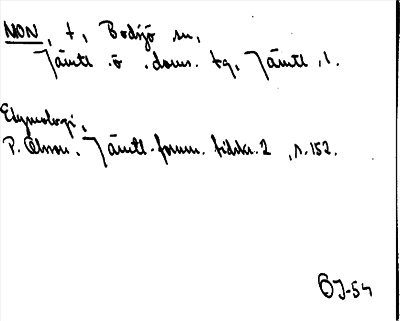 NON, t, Bodsjö sn,
Jämtl. ö. doms. tg, Jämtl. l.
Etymologi,
P. Olsson, Jämtl. fornm. tidskr. 2, s. 152.
ÖJ-54